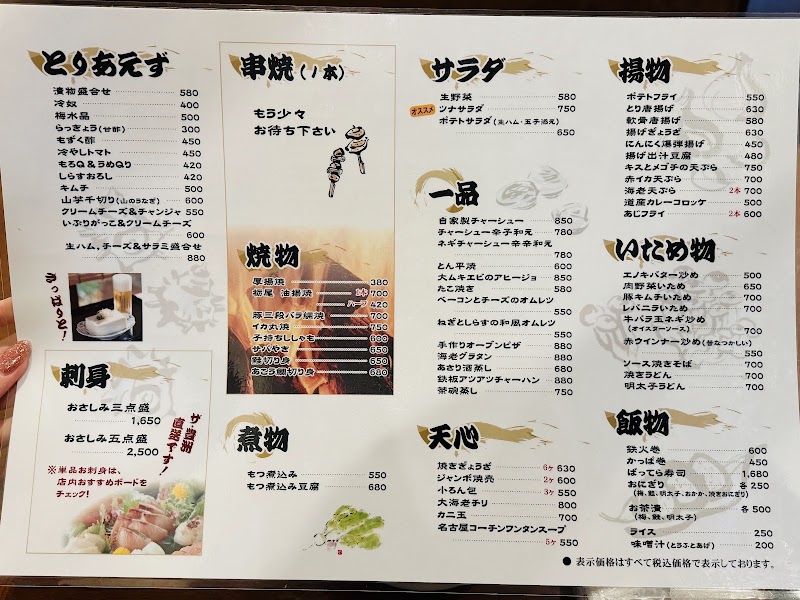 とりあえず
漬物盛合せ 580
冷奴 400
梅水晶 500
らっきょう(甘酢) 300
もずく酢 450
冷やしトマト 450
もろQ&うめQり 420
しらすおろし 420
キムチ 500
山芋千切り(山のうなぎ) 600
クリームチーズ&チャンジャ 550
いぶりがっこ&クリームチーズ
600
生ハム、チーズ&サラミ盛合せ
880
さっぱりと!
刺身
おさしみ三点盛
1,650
おさしみ五点盛
2,500
ザ・豊洲
直送です!
※単品お刺身は、
店内おすすめボードを
チェック!
串焼(1本)
もう少々
お待ち下さい
焼物
厚揚焼 380
栃尾 油揚焼 700
ハーフ 420
豚三段バラ焼 700
イカ丸焼 750
子持ちししゃも 650
サバやき 650
鮭切り身 650
あこう鯛切り身 680
煮物
もつ煮込み 550
もつ煮込み豆腐 680
サラダ
生野菜 580
オススメ ツナサラダ 750
ポテトサラダ(生ハム・玉子添え)
650
一品
自家製チャーシュー 850
チャーシュー辛子和え 780
ネギチャーシュー辛辛和え
780
とん平焼 600
大ムキエビのアヒージョ 850
たこ焼き 580
ベーコンとチーズのオムレツ
550
ねぎとしらすの和風オムレツ
550
手作りオーブンピザ 880
海老グラタン 880
あさり酒蒸し 680
鉄板アツアツチャーハン 880
茶碗蒸し 750
天心
焼きぎょうざ 6ヶ 630
ジャンボ焼売 2ヶ 600
小ろん包 3ヶ 550
大海老チリ 800
カニ玉 700
名古屋コーチンワンタンスープ
5ヶ 550
揚物
ポテトフライ 550
とり唐揚げ 630
軟骨唐揚げ 580
揚げぎょうざ 630
にんにく爆弾揚げ 450
揚げ出汁豆腐 480
キスとメゴチの天ぷら 750
赤イカ天ぷら 700
海老天ぷら 2本 700
道産カレーコロッケ 500
あじフライ 2本 600
いため物
エノキバター炒め 500
肉野菜いため 650
豚キムチいため 700
レバニラいため 700
牛バラ玉ネギ炒め
(オイスターソース) 700
赤ウインナー炒め(甘なつかしい)
550
ソース焼きそば 700
焼きうどん 700
明太子うどん 700
飯物
鉄火巻 600
かっぱ巻 450
ばってら寿司 1,680
おにぎり 各 250
(梅、鮭、明太子、おかか、焼きおにぎり)
お茶漬 各 500
(梅、鮭、明太子)
ライス 250
味噌汁(とうふとあげ) 200
● 表示価格はすべて税込価格で表示しております。